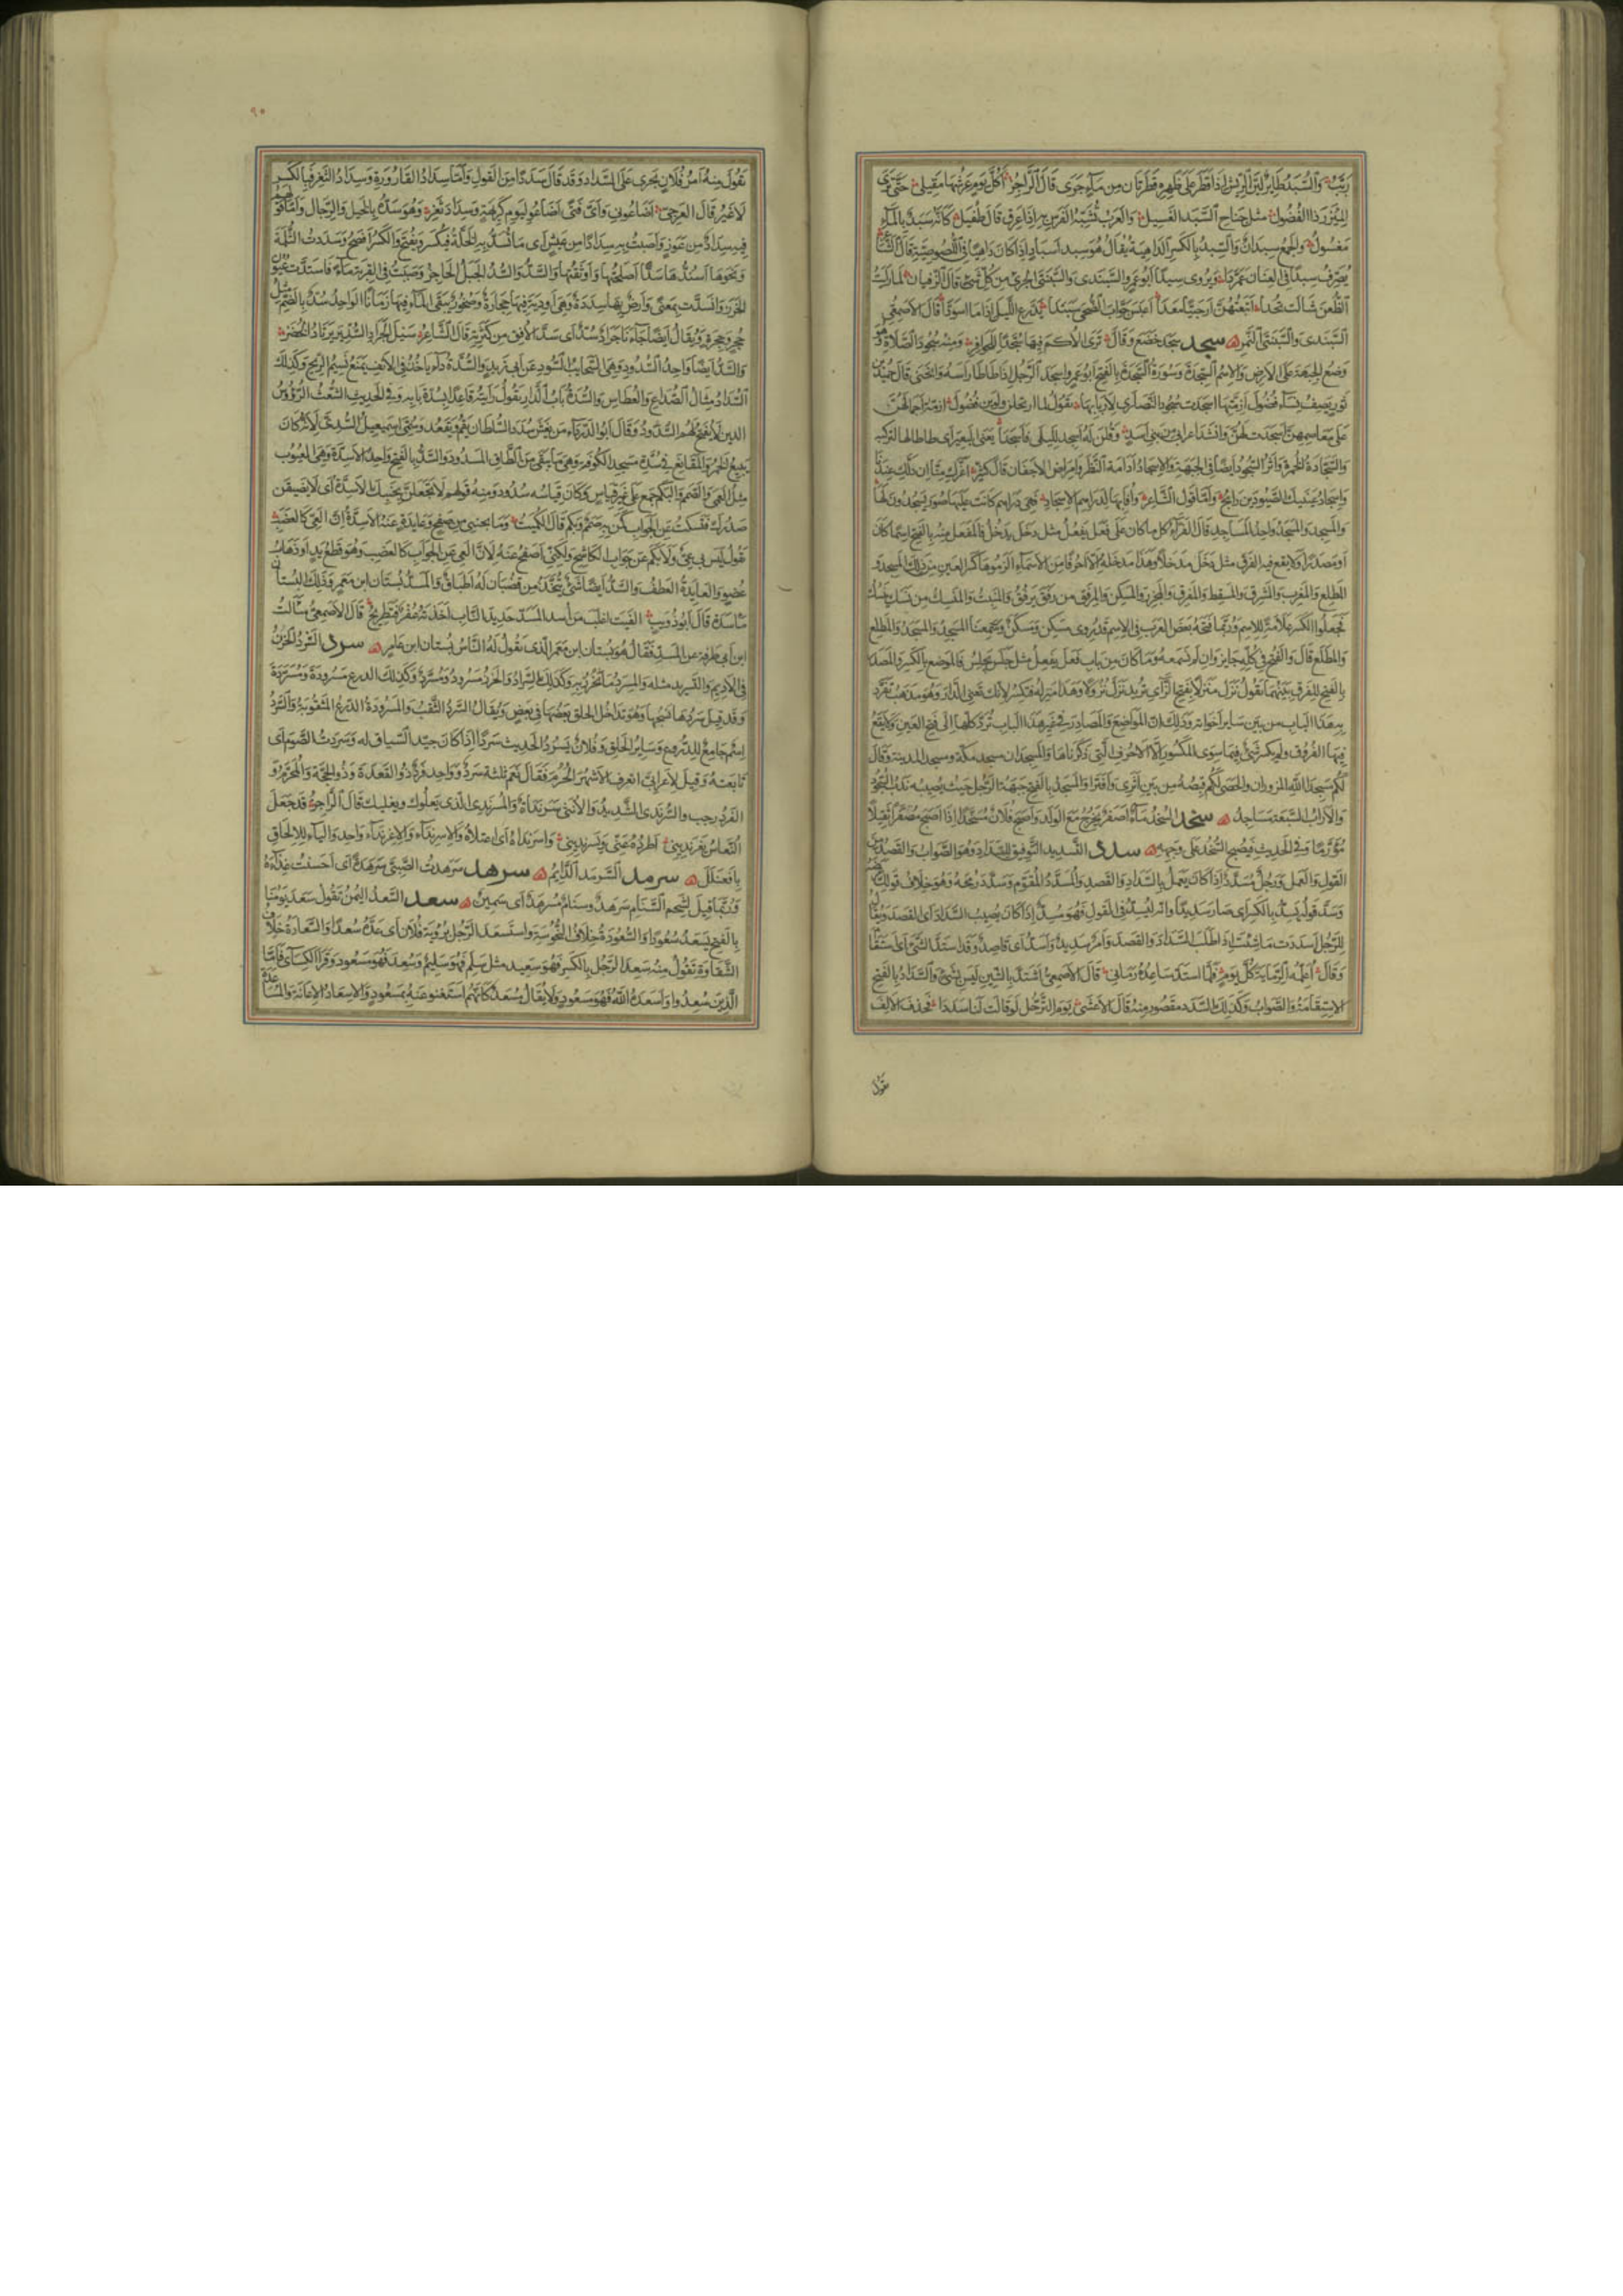 رتب والسبد طاير لين الريش اذا قطر على ظهره قطرتان من ماء جرى قال الراجز اكل يوم عرشها مقيلي حتى ترى
المئزر ذا الفضول مثل جناح السبد الغسيل والعرب تشبه الفرس به اذا عرق قال طفيل كانه سبد بالماء
مغسول والجمع سبدان والسبد بالكسر الداهية يقال هو سبد اسباد اذا كان داهيا في اللصوصية قال
يصرف سبدا في العنان عمردا ويروى سيدا ابو عمرو السبندى والسبنتى الجري من كل شئ قال الزفيان لما رايت
الظعن شالت تحدى اتبعتهن ارحبيا معدا اعيس جواب الضحى سبندا يدرع الليل اذا ما اسودا قال الاصمعي
السبندى والسبنتى النمر سجد سجد خضع وقال ترى الاكم فيها سجدا للحوافر ومنه سجود الصلاة وهو
وضع الجبهة على الارض والاسم السجدة وسورة السجدة بالفتح ابو عمرو اسجد الرجل اذا طاطا راسه وانحنى قال حميد بن
ثور يصف نساء فضول ازمتها اسجدت سجود النصارى لاربابها يقول لما ارتحلن ولوين فضول ازمة اجمالهن
على معاصمهن اسجدت لهن وانشد اعرابي من بني اسد وقلن له اسجد لليلى فاسجدا يعني البعير اى طاطا لها لتركبه
والسجادة الخمرة واثر السجود ايضا في الجبهة والاسجاد ادامة النظر وامراض الاجفان قال كثير اغرك منا ان ذلك عندنا
واسجاد عينيك الصيودين رابح واما قول الشاعر وافى بها لدراهم الاسجاد فهي دراهم كانت عليها صور يسجدون لها
والمسجد والمسجد واحد المساجد قال الفراء كل ما كان على فعل يفعل مثل دخل يدخل فالمفعل منه بالفتح اسما كان
او مصدرا ولا يقع فيه الفرق مثل دخل مدخلا وهذا مدخله الا احرفا من الاسماء الزموها كسر العين من ذلك المسجد و
المطلع والمغرب والمشرق والمسقط والمفرق والمجزر والمسكن والمرفق من رفق يرفق والمنبت والمنسك من نسك ينسك
فجعلوا الكسر علامة للاسم وربما فتحه بعض العرب في الاسم قد روى مسكن ومسكن وسمعنا المسجد والمسجد والمطلع
والمطلع قال والفتح في كله جايز وان لم نسمعه وما كان من باب فعل يفعل مثل جلس يجلس فالموضع بالكسر والمصدر
بالفتح للفرق بينهما تقول نزل منزلا بفتح الزاى تريد نزل نزولا وهذا منزله فتكسر لانك تعني الدار وهو مذهب تفرد
به هذا الباب من بين ساير اخواته وذلك ان المواضع والمصادر في غير هذا الباب ترد كلها الى فتح العين ولا يقع
فيها الفروق ولم يكسر شئ فيما سوى المكسور الا الاحرف التي ذكرناها والمسجدان مسجد مكة ومسجد المدينة وقال
لكم مسجدا الله المزوران والحصى لكم قبصه من بين اثرى واقترا والمسجد بالفتح جبهة الرجل حيث يصيبه ندب السجود
والاراب السبعة مساجد سخد السخد ماء اصفر يخرج مع الولد واصبح فلان مسخدا اذا اصبح مصفرا ثقيلا
مورما وفي الحديث فيصبح السخد على وجهه سدد التسديد التوفيق للسداد وهو الصواب والقصد من
القول والعمل ورجل مسدد اذا كان يعمل بالسداد والقصد والمسدد المقوم وسدد رمحه وهو خلاف قولك
وسد قوله يسد بالكسر اى صار سديدا وانه ليسد في القول فهو مسد اذا كان يصيب السداد اى القصد ويقال
للرجل اسددت ما شئت اذا طلب السداد والقصد وامر سديد واسد اى قاصد وقد استد الشئ اى استقام
وقال اعلمه الرماية كل يوم فلما استد ساعده رماني قال الاصمعي اشتد بالشين ليس بشئ والسداد بالفتح
الاستقامة والصواب وكذلك السدد مقصور منه قال الاعشى يوم الترحل لو قالت لنا سددا فحذف الالف
تقول
٩٠
تقول منه امر فلان يجري على السداد وقد قال سددا من القول واما سداد القارورة وسداد الثغر فبالكسر
لا غير قال العرجي اضاعوني واي فتى اضاعوا ليوم كريهة وسداد ثغر وهو سده بالخيل والرجال واما قولهم
فيه سداد من عوز واصبت به سدادا من عيش اى ما تسد به الخلة فيكسر ويفتح والكسر افصح وسددت الثلمة
ونحوها اسدها سدا اصلحتها واوثقتها والسد والسد الجبل الحاجز وصببت في القربة ماء فاستدت عيون
الخرز وانسدت بمعنى وارض بها سددة وهي اودية فيها حجارة وصخور يبقى الماء فيها زمانا الواحد سد بالضم مثل
جحر وجحرة ويقال ايضا جاءنا جراد سد اى سد الافق من كثرته قال الشاعر سيل الجراد السد يرتاد الخضر
والسد ايضا واحد السدود وهي السحايب السود عن ابي زيد والسدة داء ياخذ في الانف يمنع نسيم الريح وكذلك
السداد مثال الصداع والعطاس والسدة باب الدار يقول رايته قاعدا بسدة بابه وفي الحديث الشعث الرؤوس
الذين لا تفتح لهم السدد وقال ابو الدرداء من يغش سدد السلطان يقم ويقعد وسمي اسمعيل السدي لانه كان
يبيع الخمر والمقانع في سدة مسجد الكوفة وهي ما يبقى من الطاق المسدود والسد بالفتح واحد الاسدة وهي العيوب
مثل العمى والصمم والبكم جمع على غير قياس وكان قياسه سدود ومنه قولهم لا تجعلن بجنبك الاسدة اى لا يضيقن
صدرك فتسكت عن الجواب كمن به صمم وبكم قال الكميت وما بجنبي من صفح وعايدة عند الاسدة ان العي كالعضب
تقول ليس بي عي ولا بكم عن جواب الكاشح ولكني اصفح عنه لان العي عن الجواب كالعضب وهو قطع يد او ذهاب
عضو والعايدة العطف والسد ايضا شئ يتخذ من قضبان له اطباق والمسد بستان ابن معمر وذلك البستان
ماسدة قال ابو ذؤيب الفيت اغلب من اسد المسد حديد الناب اخذته عفر فتطريح قال الاصمعي سالت
ابن ابي طرفة عن المسد فقال هو بستان ابن معمر الذي يقول له الناس بستان ابن عامر سرد السرد الخرز
في الاديم والتسريد مثله والمسرد ما يخرز به وكذلك السراد والخرز مسرود ومسرد وكذلك الدرع مسرودة ومسردة
وقد قيل سردها نسجها وهو تداخل الحلق بعضها في بعض ويقال السرد الثقب والمسرودة الدرع المثقوبة والسرد
اسم جامع للدروع وساير الحلق وفلان يسرد الحديث سردا اذا كان جيد السياق له وسردت الصوم اى
تابعته وقيل لاعرابي اتعرف الاشهر الحرم فقال نعم ثلثة سرد وواحد فرد ذو القعدة وذو الحجة والمحرم و
الفرد رجب والسرندى الشديد والانثى سرنداة والمسرندي الذي يعلوك ويغلبك قال الراجز قد جعل
النعاس يغرنديني اطرده عني ويسرنديني واسرنداه اى اعتلاه والاسرنداء والاغرنداء واحد والياء للالحاق
بافعنلل سرمد السرمد الدايم سرهد سرهدت الصبي سرهدة اى احسنت غذاءه
وربما قيل لشحم السنام سرهد وسنام مسرهد اى سمين سعد السعد اليمن تقول سعد يومنا
بالفتح يسعد سعودا والسعودة خلاف النحوسة واستسعد الرجل برؤية فلان اى عده سعدا والسعادة خلاف
الشقاوة تقول منه سعد الرجل بالكسر فهو سعيد مثل سلم فهو سليم وسعد فهو مسعود وقرا الكساءي فاما
الذين سعدوا واسعده الله فهو مسعود ولا يقال مسعد كانهم استغنوا عنه بمسعود والاسعاد الاعانة والمساعدة